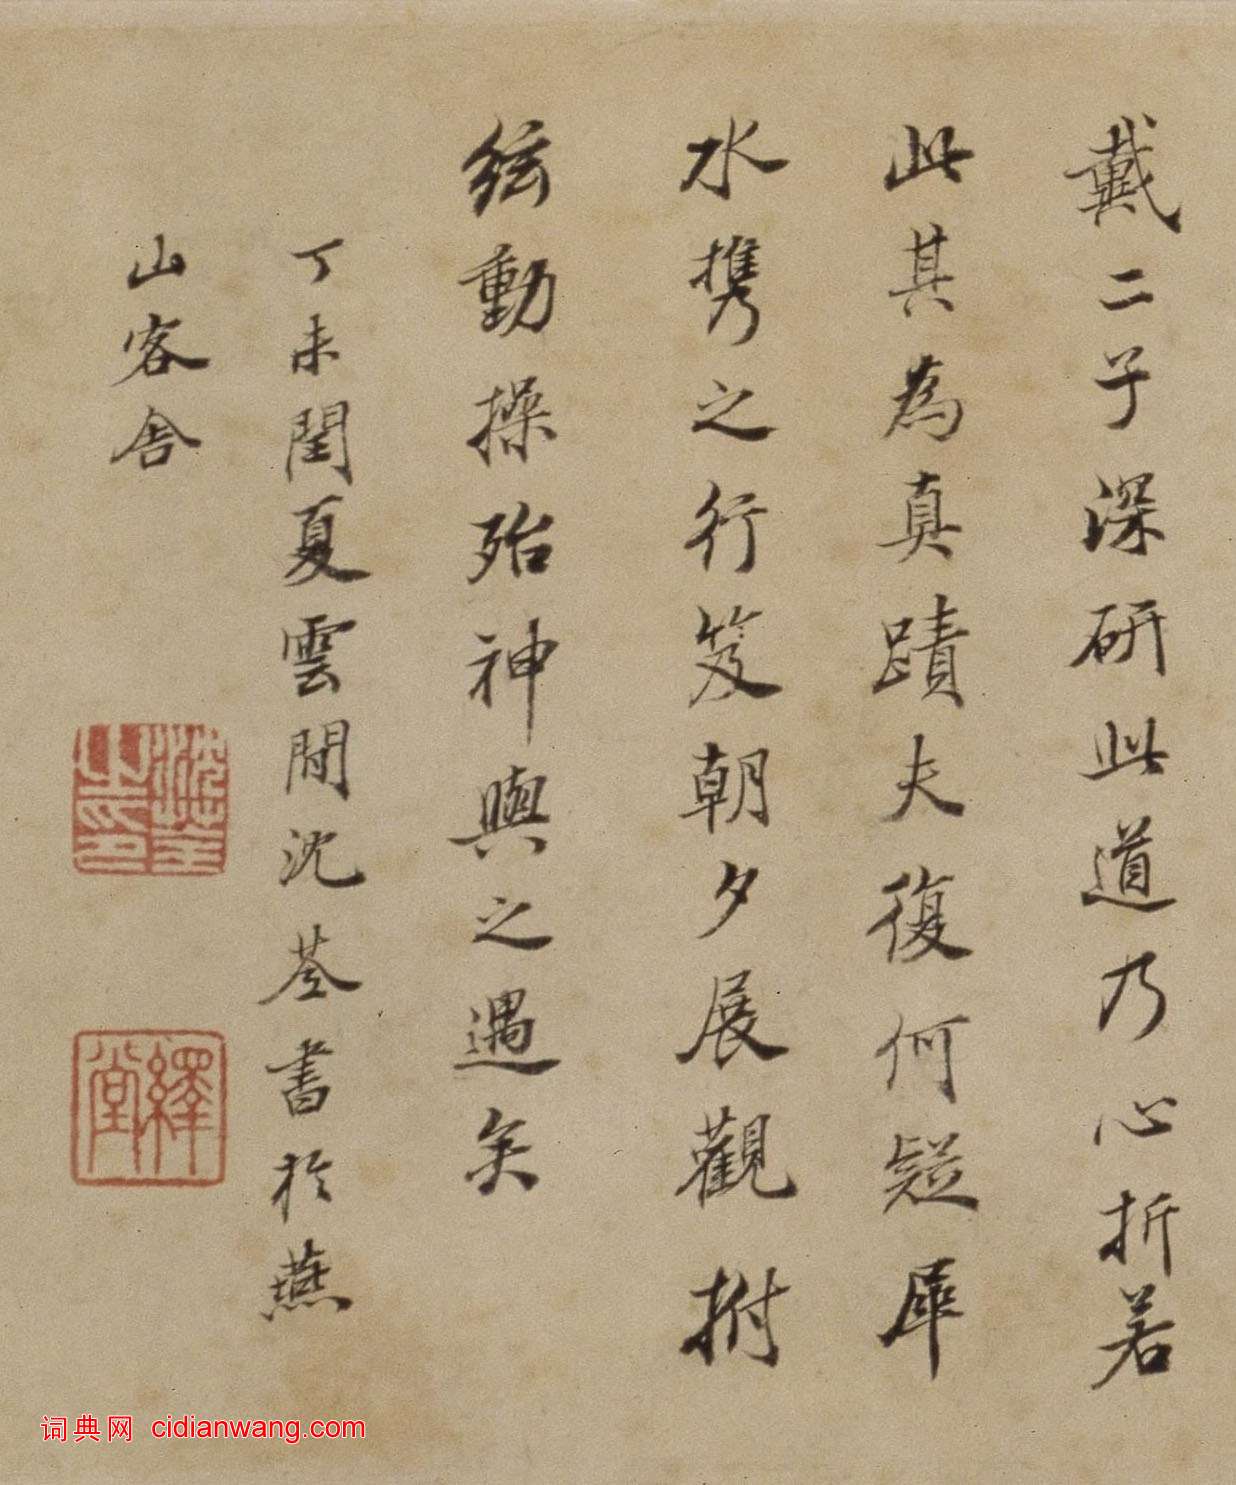 戴二子深研此道乃心折若
此其為真蹟夫復何疑犀
水攜之行笈朝夕展觀拊
絃動操殆神與之遇矣
丁未閏夏雲間沈荃書於燕
山客舍
沈荃之印
繹堂
词典网 cidianwang.com